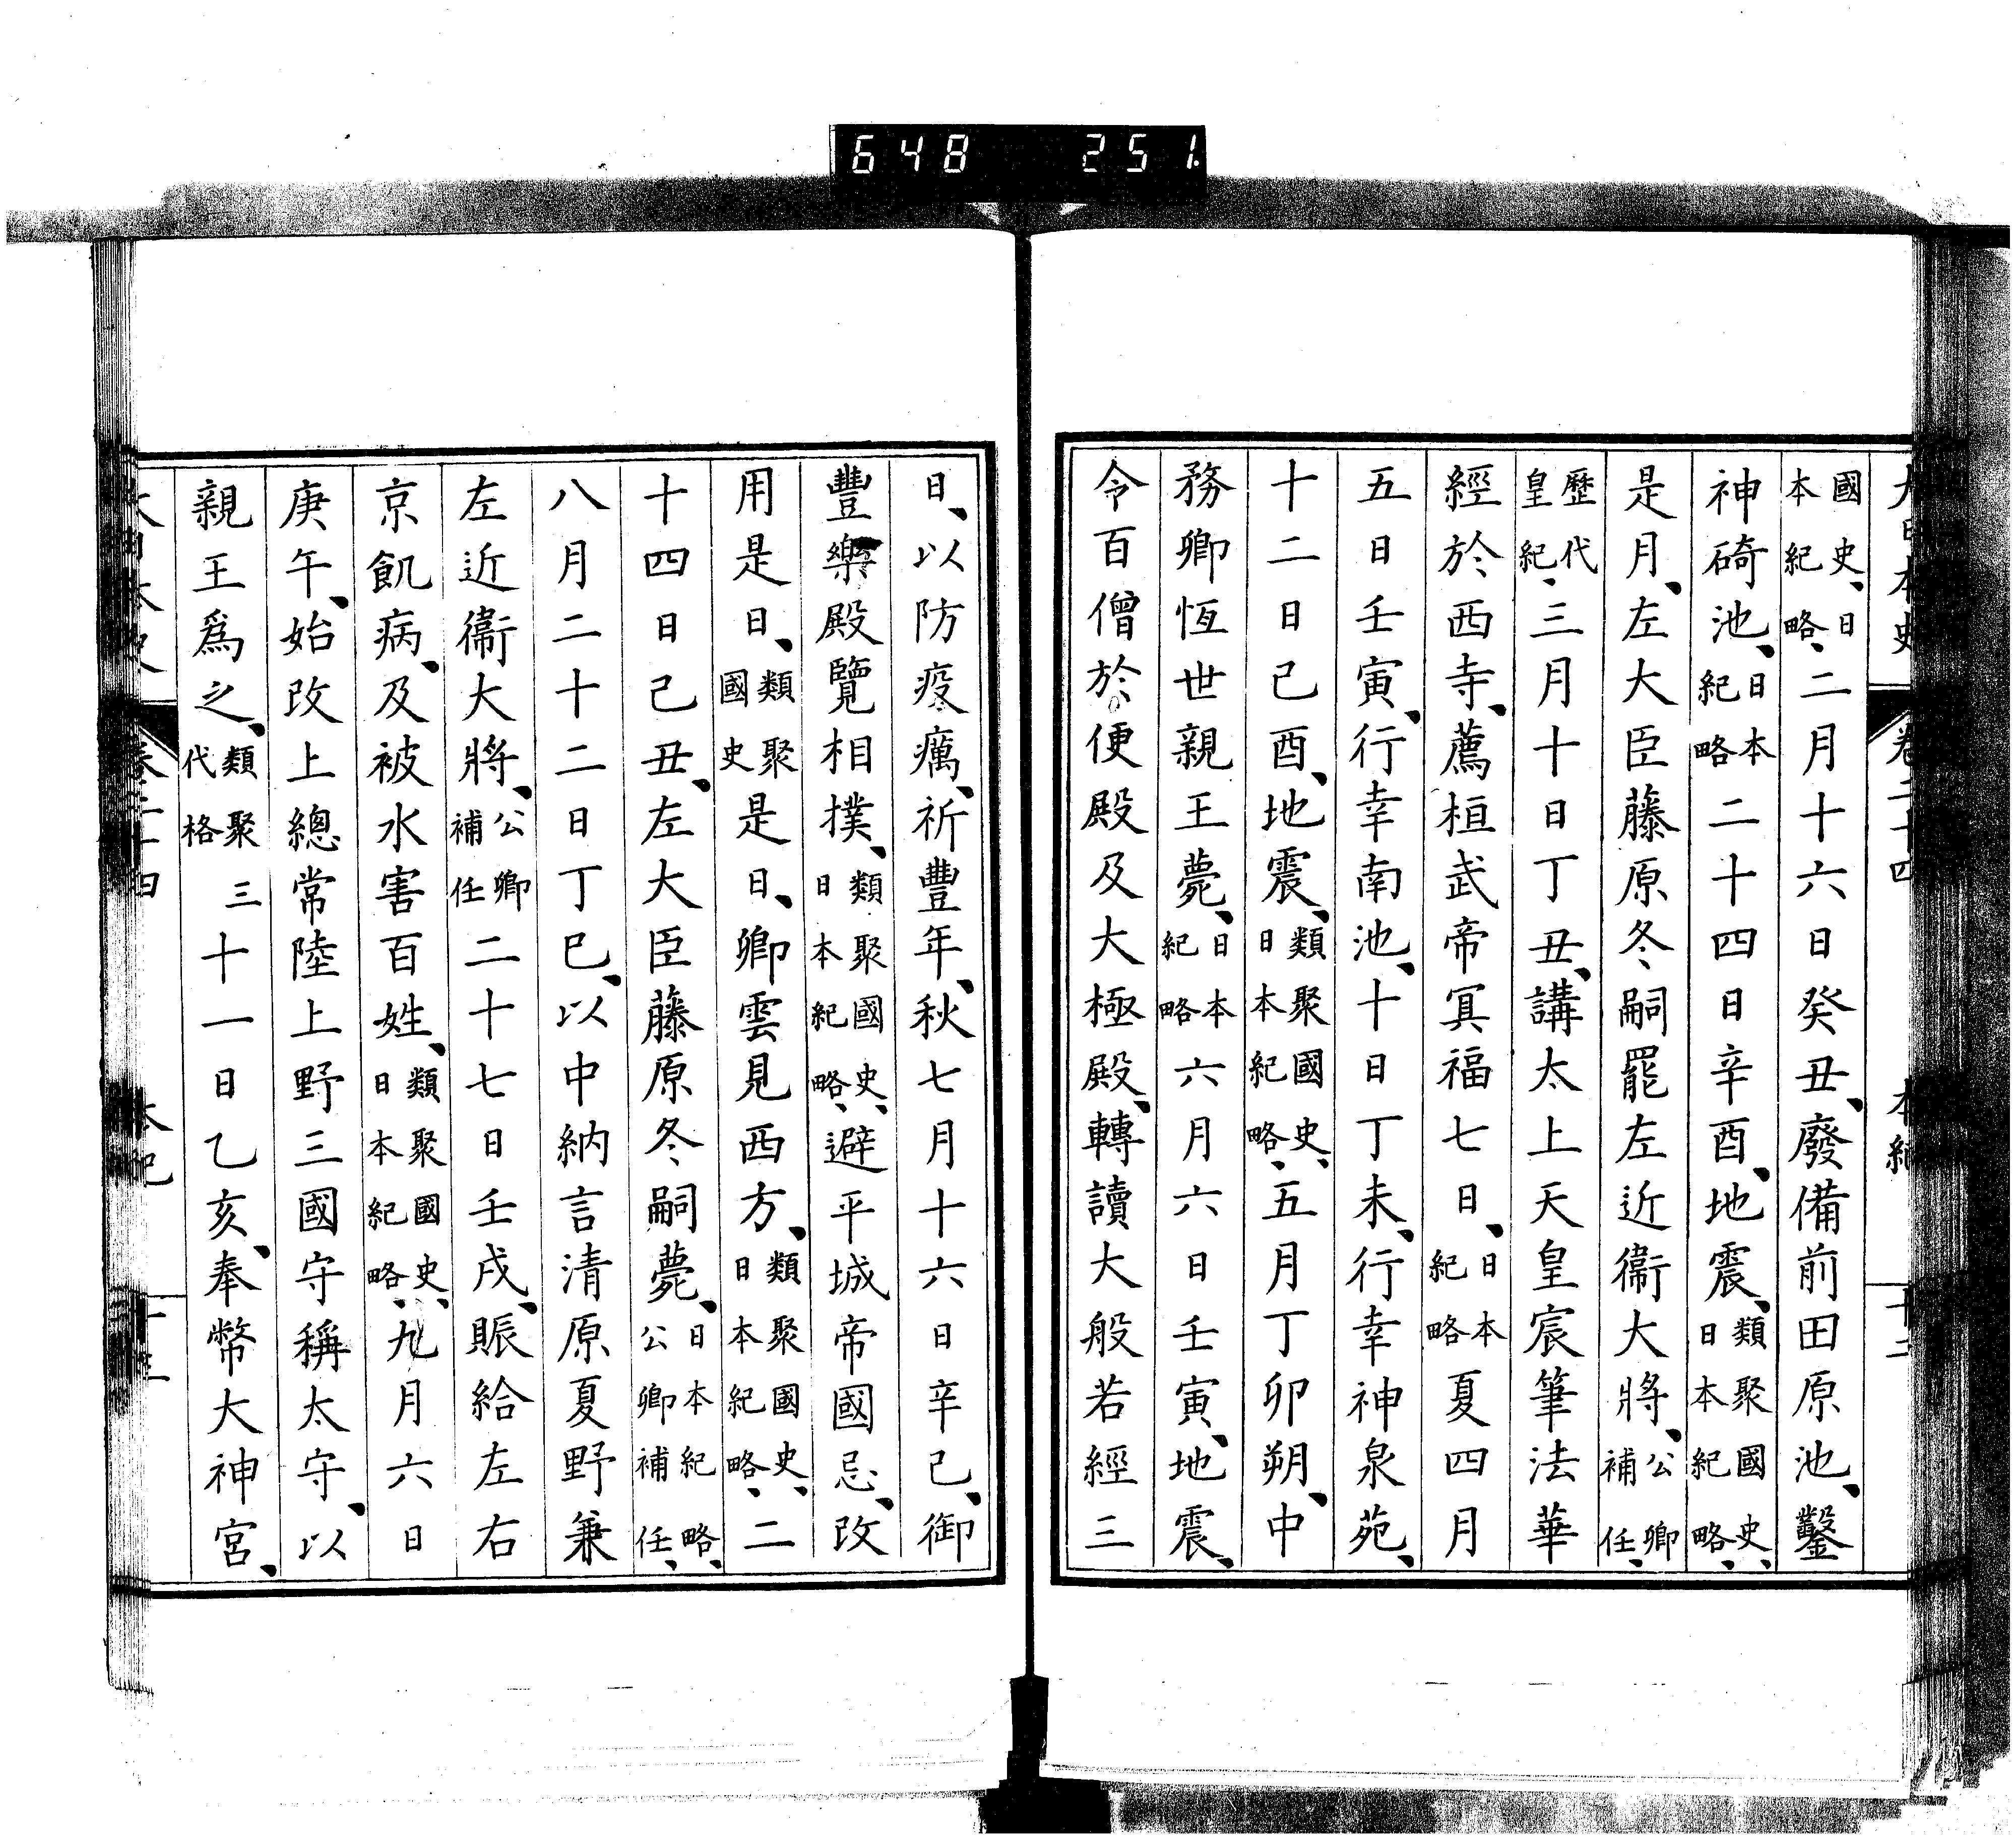 648 251
國史、日本紀略、二月十六日癸丑、廢備前田原池、鑿
神碕池、日本紀略二十四日辛酉、地震、類聚國史、日本紀略、
是月、左大臣藤原冬嗣罷左近衞大將、公卿補任、
歷代皇紀、三月十日丁丑、講太上天皇宸筆法華
經於西寺、薦桓武帝冥福七日、日本紀略夏四月
五日壬寅、行幸南池、十日丁未、行幸神泉苑、
十二日己酉、地震、類聚國史、日本紀略、五月丁卯朔、中
務卿恆世親王薨、日本紀略六月六日壬寅、地震、
令百僧於便殿及大極殿、轉讀大般若經三
日、以防疫癘、祈豐年、秋七月十六日辛巳、御
豐樂殿覽相撲、類聚國史、日本紀略、避平城帝國忌、改
用是日、類聚國史是日、卿雲見西方、類聚國史、日本紀略、二
十四日己丑、左大臣藤原冬嗣薨、日本紀略、公卿補任、
八月二十二日丁巳、以中納言清原夏野兼
左近衞大將、公卿補任二十七日壬戌、賑給左右
京飢病、及被水害百姓、類聚國史、日本紀略、九月六日
庚午、始改上總常陸上野三國守稱太守、以
親王爲之、類聚三代格十一日乙亥、奉幣大神宮、